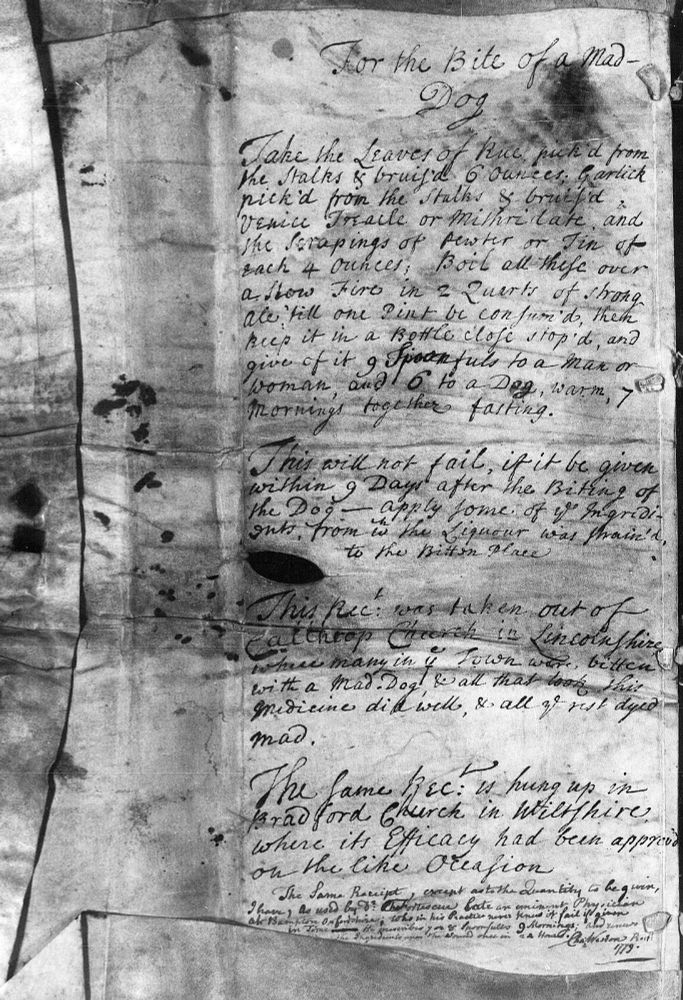 For the Bite of a Mad-
Dog
Take the Leaves of Rue pick'd from
the Stalks & bruis'd 6 Ounces; Garlick
pick'd from the Stalks & bruis'd,
Venice Treacle or Mithridate, and
the Scrapings of Pewter or Tin of
each 4 Ounces; Boil all these over
a Slow Fire in 2 Quarts of strong
ale 'till one Pint be consum'd, then
keep it in a Bottle close stop'd, and
give of it 9 Spoonfuls to a Man or
woman, and 6 to a Dog, warm, 7
Mornings together fasting.
This will not fail, if it be given
within 9 Days after the Biting of
the Dog — apply some of ye Ingredi-
ents, from wch the Liquour was strain'd,
to the Bitten Place
This Rect: was taken out of
Calthrop Church in Lincolnshire
where many in ye Town were bitten
with a Mad-Dog, & all that took this
Medicine did well, & all ye rest dyed
mad.
The same Rect: is hung up in
Bradford Church in Wiltshire,
where its Efficacy had been approv'd
on the like Occasion
The Same Receipt, except as to the Quantity to be given,
I have, As used by Dr. Fortescue late an eminent Physician
at Bampton Oxfordshire; who in his Practice never knew it fail if given
in Time — He prescribes 7 or 8 Spoonfulls 9 Mornings; and renews
the Ingredients upon the Wound once in 24 Hours.